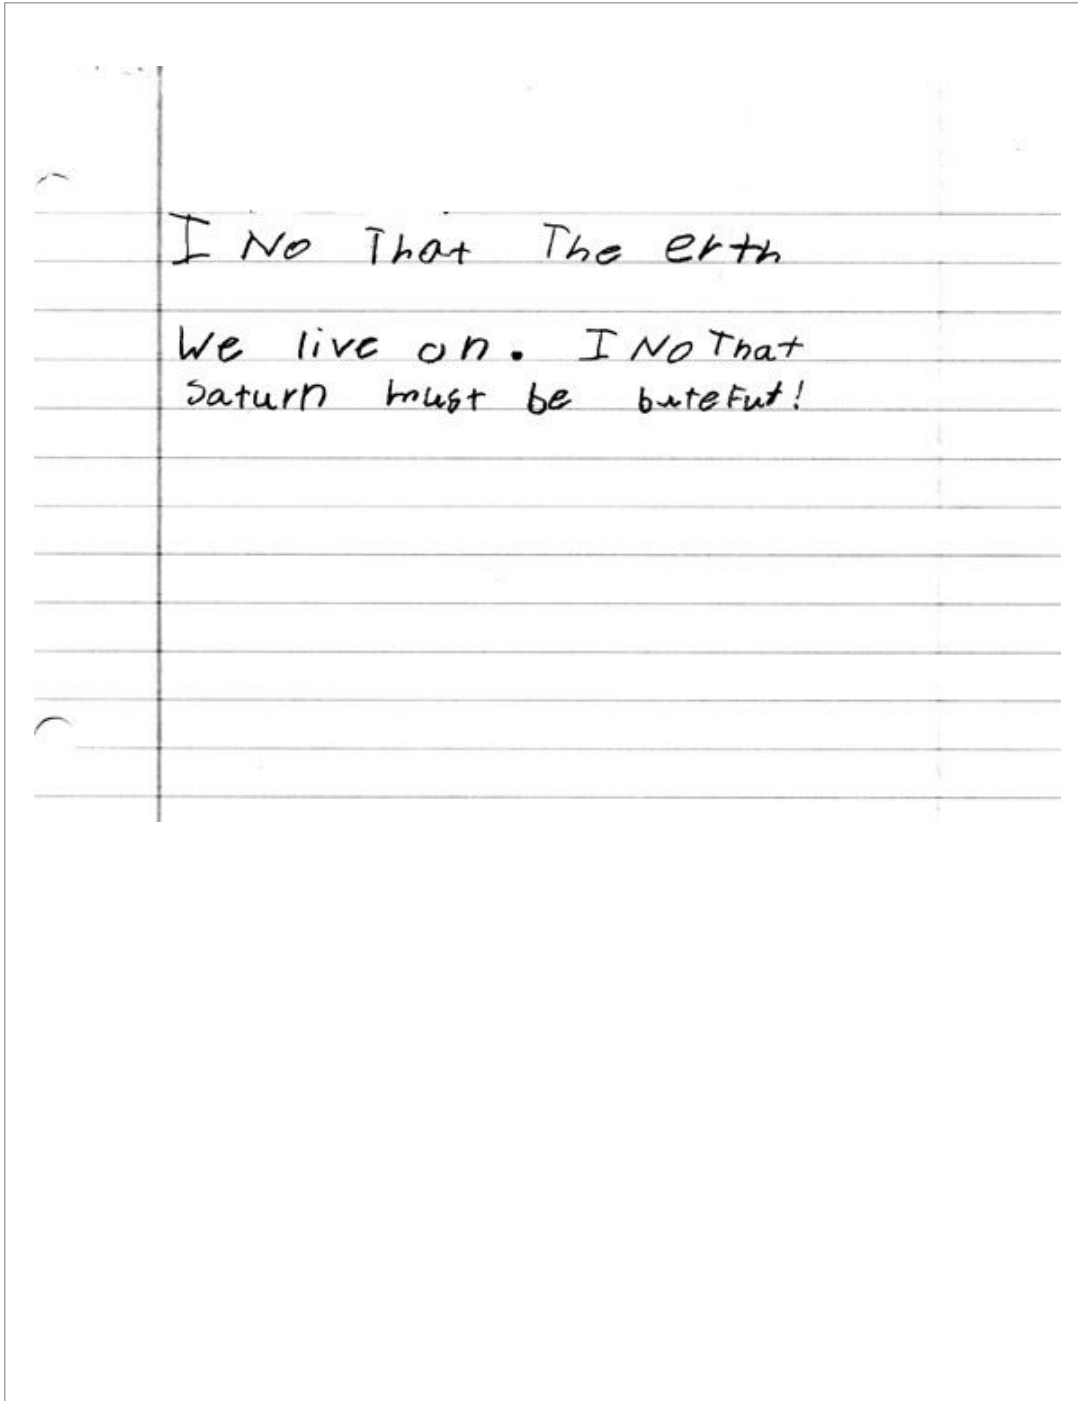 I No That The erth
We live on. I No That
Saturn must be buteFut!